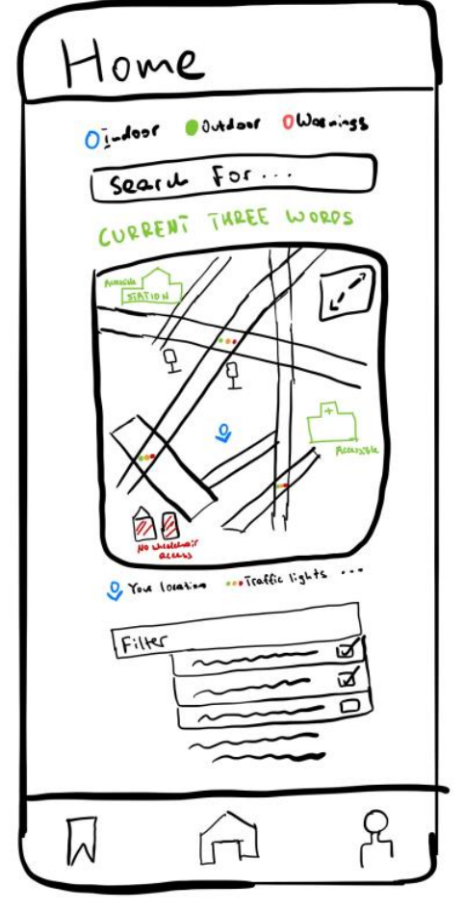 Home
Indoor Outdoor Warnings
Search For...
CURRENT THREE WORDS
Accessible
STATION
Accessible
No wheelchair
access
Your location Traffic lights ...
Filter